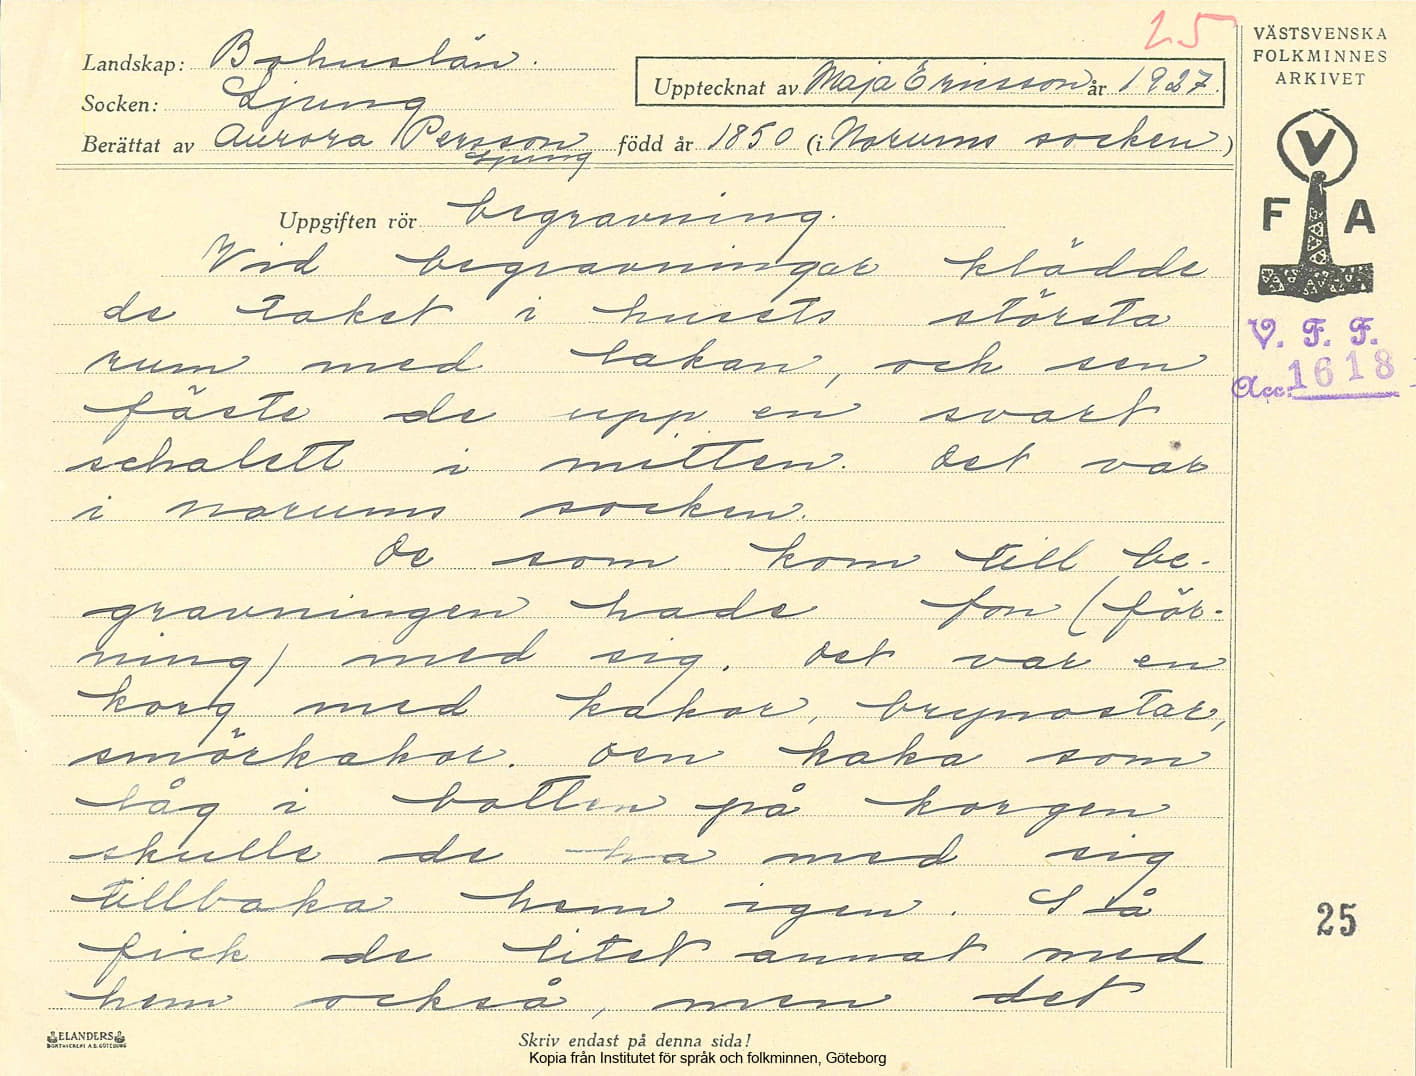 25
VÄSTSVENSKA
FOLKMINNES
ARKIVET
Landskap: Bohuslän.
Socken: Ljung
Upptecknat av Maja Ericsson år 1927.
Berättat av Aurora Persson född år 1850 (i Norums socken)
Ljung
V
F A
V. F. F.
Acc: 1618
Uppgiften rör begravning.
Vid begravningar klädde
de taket i husets största
rum med lakan, och sen
fäste de upp en svart
schalett i mitten. Det var
i Norums socken.
De som kom till be-
gravningen hade fon (för-
ning) med sig. Det var en
korg med kakor, brynostar,
smörkakor. Den kaka som
låg i botten på korgen
skulle de ha med sig
tillbaka hem igen. Så
fick de litet annat med
hem också, men det
25
ELANDERS
BOKTRYCKERI A.B. GÖTEBORG
Skriv endast på denna sida!
Kopia från Institutet för språk och folkminnen, Göteborg